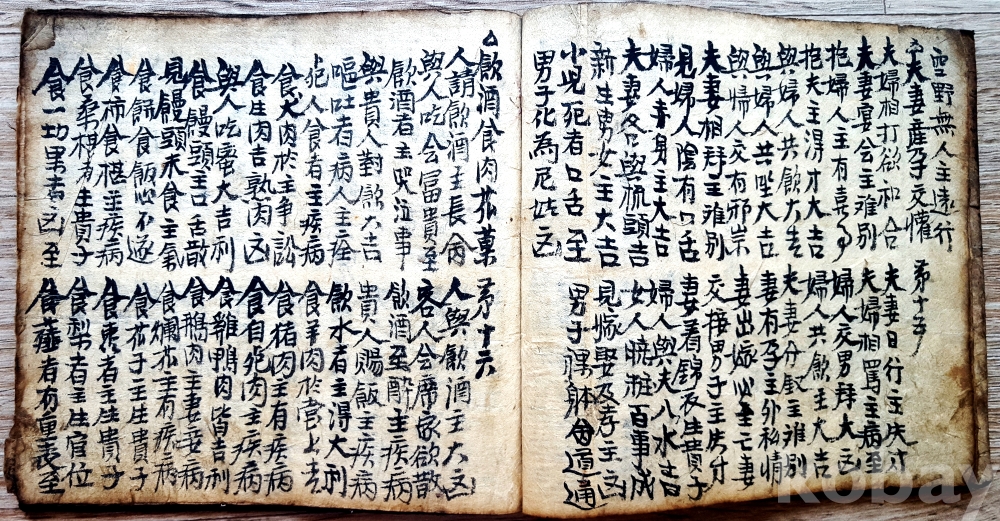 空野無人主遠行
夫妻産孕交懽 第十五
夫婦相打欲和合 夫妻日行主失財
夫妻宴会主难別 夫婦相罵主病至
抱婦人主有喜事 婦人交男拜大凶
抱夫主得才大吉 婦人共飲主大吉
與婦人共飲大吉 夫妻分釵主难別
與婦人共坐大吉 妻有孕主外私情
與婦人交有邪祟 妻出嫁必至亡妻
夫妻相拜主难別 交接男子主失財
見婦人陰有口舌 妻着錦衣生貴子
婦人身主大吉 婦人與夫入水吉
夫妻各與梳頭吉 女人晓粧百事成
新生男女主大吉 見嫁娶及孝主凶
小児死者口舌至 男子裸体通
男子化為尼姑凶
△飲酒食肉茶菓 第十六
人請飲酒主長命 人與飲酒主大凶
與人吃会冨貴至 客人会席家欲散
飲酒者主哭泣事 飲酒至醉主疾病
與貴人對飲大吉 貴人賜飯主疾病
嘔吐者病人主痊 飲水者主得大利
犯人食者主疾病 食羊肉於當上吉
食犬肉於主争訟 食猪肉主有疾病
食生肉吉熟肉凶 食自死肉主疾病
與人吃蜜大吉利 食雞鴨肉皆吉利
食饅頭主口舌散 食鵝肉主妻妾病
見饅頭未食主氣 食爛苽主有疾病
食餳食飯心不遂 食苽子主生貴子
食柿食椹主疾病 食棗者主生貴子
食桑椹者主貴子 食梨者主生官位
食一切果者凶至 食者有重喪至
kobay